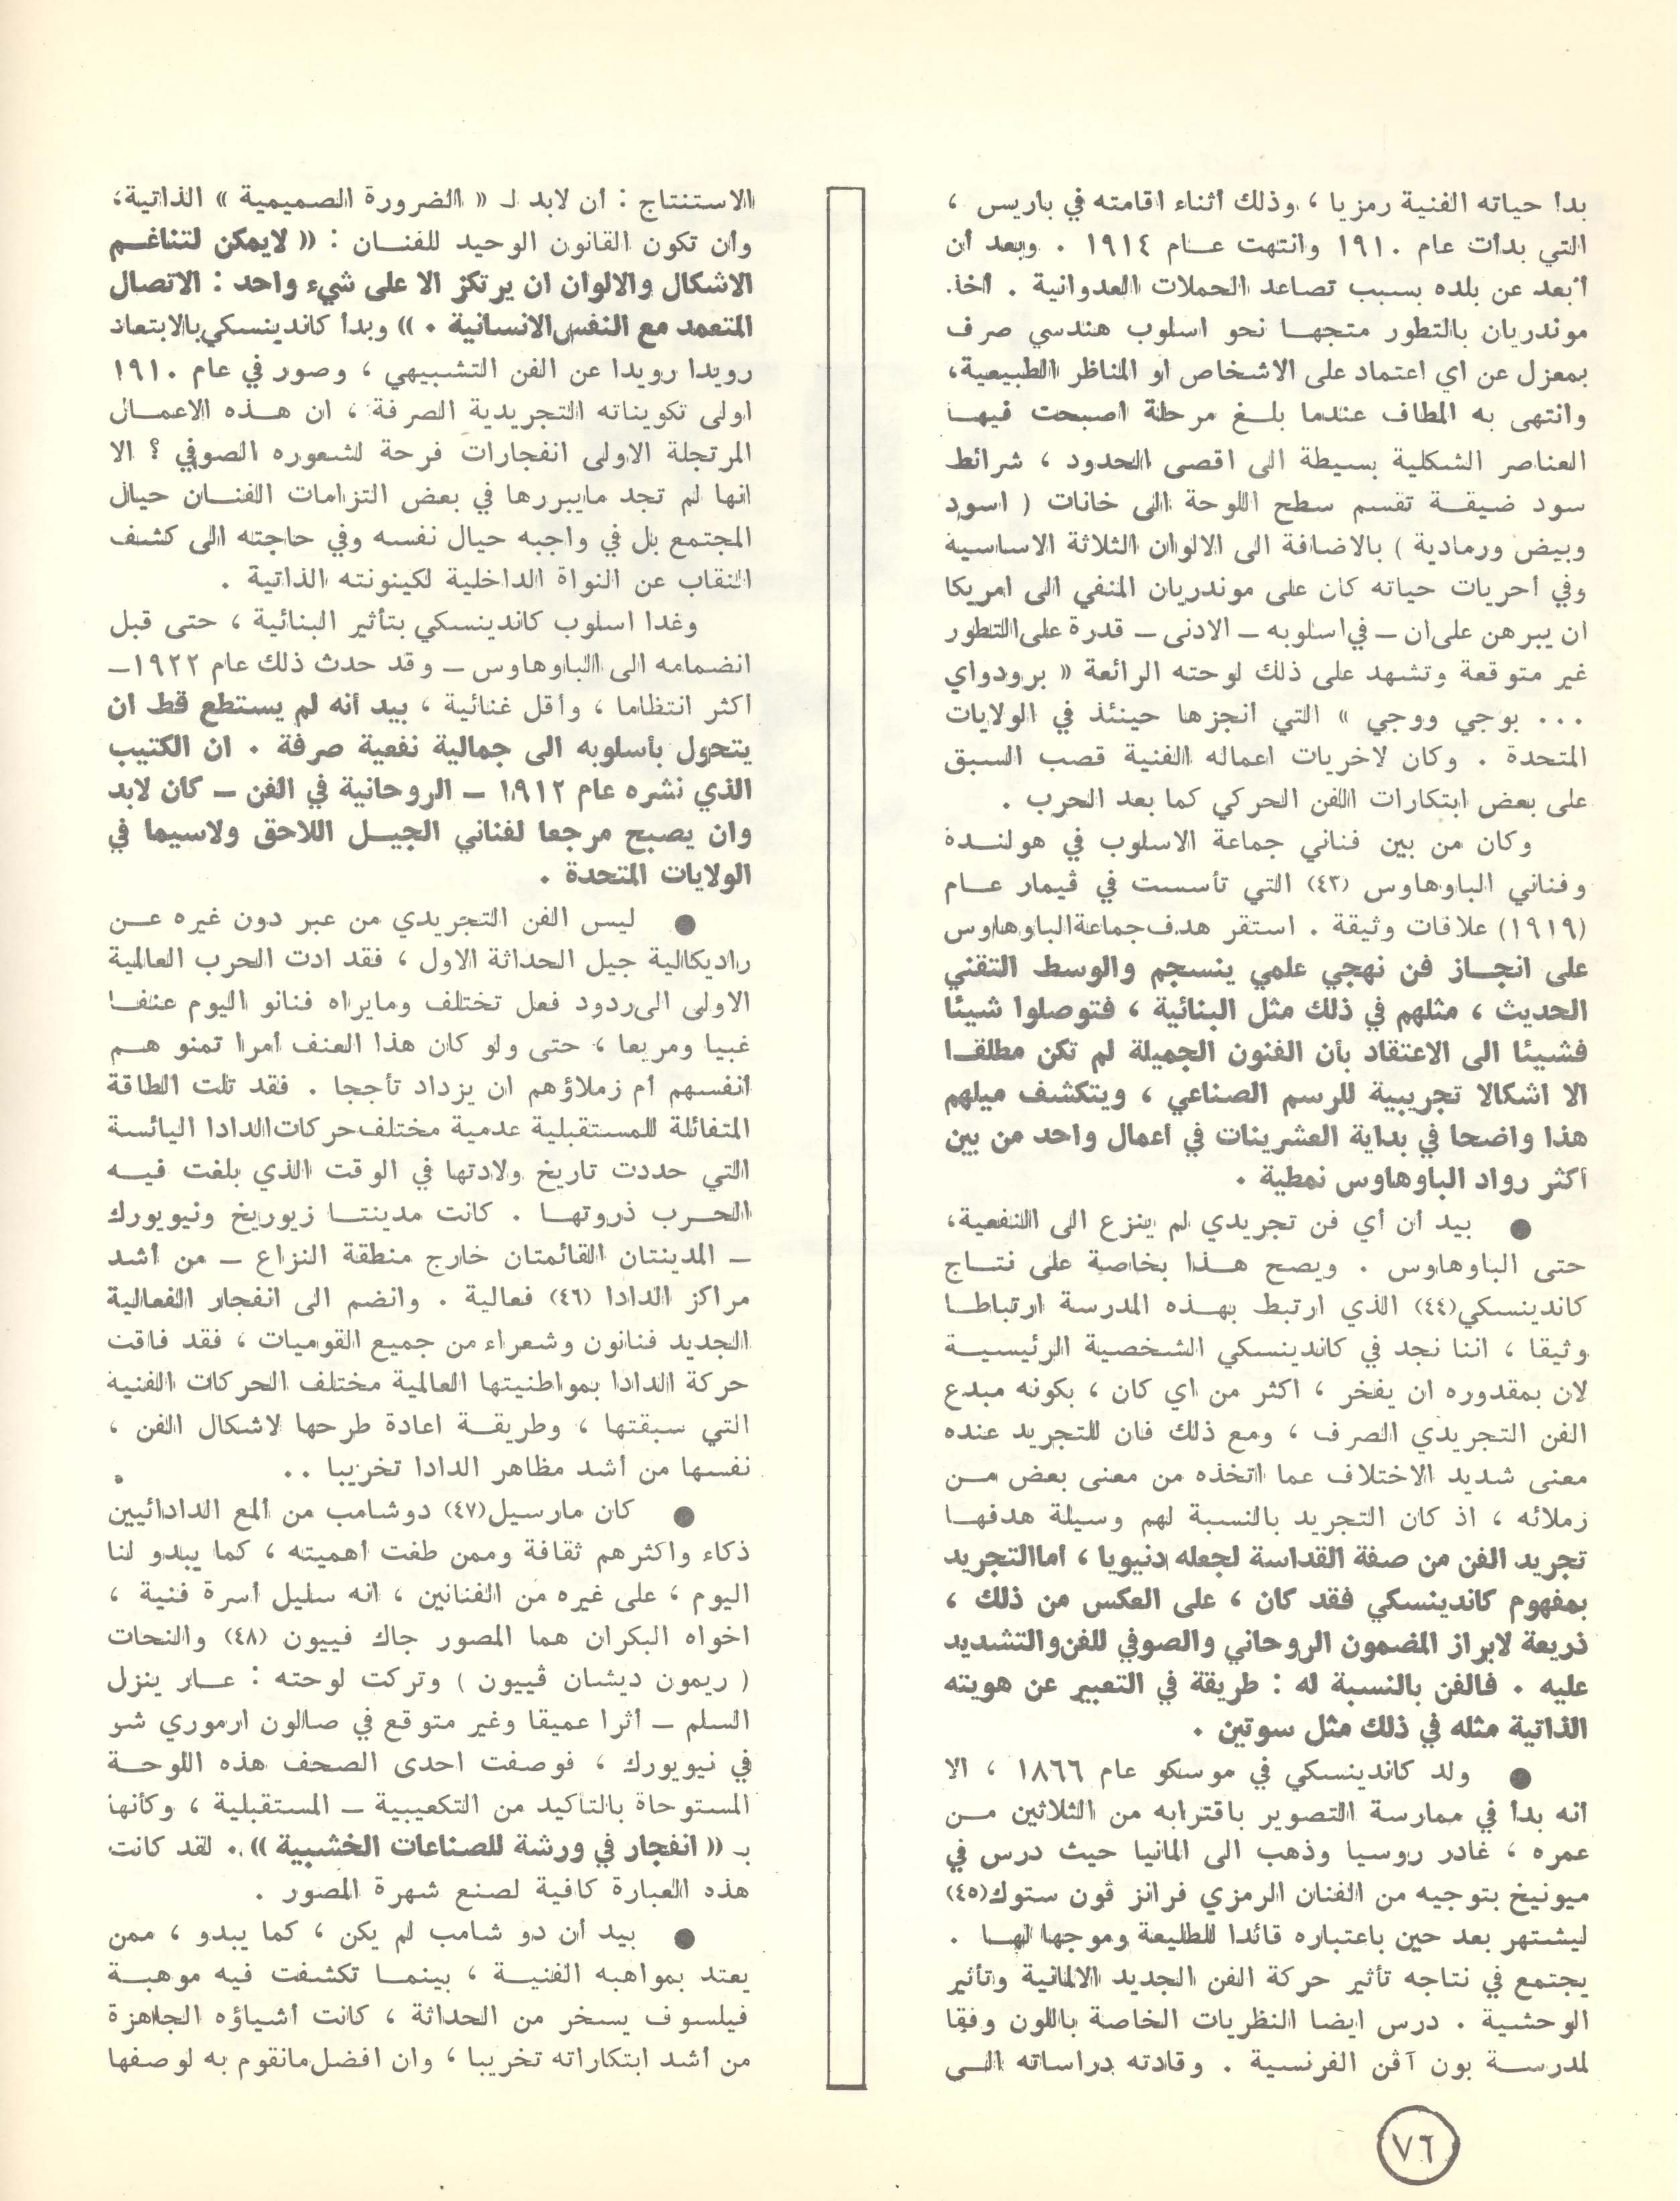 بدأ حياته الفنية رمزيا ، وذلك أثناء اقامته في باريس ،
التي بدأت عام ١٩١٠ وانتهت عام ١٩١٤ . وبعد أن
أبعد عن بلده بسبب تصاعد الحملات العدوانية . أخذ
موندريان بالتطور متجها نحو اسلوب هندسي صرف
بمعزل عن اي اعتماد على الاشخاص او المناظر الطبيعية،
وانتهى به المطاف عندما بلغ مرحلة اصبحت فيها
العناصر الشكلية بسيطة الى اقصى الحدود ، شرائط
سود ضيقة تقسم سطح اللوحة الى خانات ( اسود
وبيض ورمادية ) بالاضافة الى الالوان الثلاثة الاساسية
وفي أحريات حياته كان على موندريان المنفي الى امريكا
ان يبرهن على ان – في اسلوبه – الادنى – قدرة على التطور
غير متوقعة وتشهد على ذلك لوحته الرائعة « برودواي
... بوجي ووجي » التي انجزها حينئذ في الولايات
المتحدة . وكان لاخريات اعماله الفنية قصب السبق
على بعض ابتكارات الفن الحركي كما بعد الحرب .
وكان من بين فناني جماعة الاسلوب في هولندة
وفناني الباوهاوس (٤٣) التي تأسست في ڤيمار عام
(١٩١٩) علاقات وثيقة . استقر هدف جماعة الباوهاوس
على انجاز فن نهجي علمي ينسجم والوسط التقني
الحديث ، مثلهم في ذلك مثل البنائية ، فتوصلوا شيئا
فشيئا الى الاعتقاد بأن الفنون الجميلة لم تكن مطلقا
الا اشكالا تجريبية للرسم الصناعي ، ويتكشف ميلهم
هذا واضحا في بداية العشرينات في أعمال واحد من بين
أكثر رواد الباوهاوس نمطية .
● بيد أن أي فن تجريدي لم ينزع الى النفعية،
حتى الباوهاوس . ويصح هذا بخاصة على نتاج
كاندينسكي(٤٤) الذي ارتبط بهذه المدرسة ارتباطا
وثيقا ، اننا نجد في كاندينسكي الشخصية الرئيسية
لان بمقدوره ان يفخر ، اكثر من اي كان ، بكونه مبدع
الفن التجريدي الصرف ، ومع ذلك فان للتجريد عنده
معنى شديد الاختلاف عما اتخذه من معنى بعض من
زملائه ، اذ كان التجريد بالنسبة لهم وسيلة هدفها
تجريد الفن من صفة القداسة لجعله دنيويا ، اما التجريد
بمفهوم كاندينسكي فقد كان ، على العكس من ذلك ،
ذريعة لابراز المضمون الروحاني والصوفي للفن والتشديد
عليه . فالفن بالنسبة له : طريقة في التعبير عن هويته
الذاتية مثله في ذلك مثل سوتين .
● ولد كاندينسكي في موسكو عام ١٨٦٦ ، الا
أنه بدأ في ممارسة التصوير باقترابه من الثلاثين من
عمره ، غادر روسيا وذهب الى المانيا حيث درس في
ميونيخ بتوجيه من الفنان الرمزي فرانز ڤون ستوك(٤٥)
ليشتهر بعد حين باعتباره قائدا للطليعة وموجها لها .
يجتمع في نتاجه تأثير حركة الفن الجديد الالمانية وتأثير
الوحشية . درس ايضا النظريات الخاصة باللون وفقا
لمدرسة بون آڤن الفرنسية . وقادته دراساته الى
الاستنتاج : أن لابد لـ « الضرورة الصميمية » الذاتية،
وأن تكون القانون الوحيد للفنان : « لايمكن لتناغم
الاشكال والالوان ان يرتكز الا على شيء واحد : الاتصال
المتعمد مع النفس الانسانية . » وبدأ كاندينسكي بالابتعاد
رويدا رويدا عن الفن التشبيهي ، وصور في عام ١٩١٠
اولى تكويناته التجريدية الصرفة ، ان هذه الاعمال
المرتجلة الاولى انفجارات فرحة لشعوره الصوفي ؟ الا
انها لم تجد مايبررها في بعض التزامات الفنان حيال
المجتمع بل في واجبه حيال نفسه وفي حاجته الى كشف
النقاب عن النواة الداخلية لكينونته الذاتية .
وغدا اسلوب كاندينسكي بتأثير البنائية ، حتى قبل
انضمامه الى الباوهاوس – وقد حدث ذلك عام ١٩٢٢ –
اكثر انتظاما ، وأقل غنائية ، بيد أنه لم يستطع قط ان
يتحول بأسلوبه الى جمالية نفعية صرفة . ان الكتيب
الذي نشره عام ١٩١٢ – الروحانية في الفن – كان لابد
وان يصبح مرجعا لفناني الجيل اللاحق ولاسيما في
الولايات المتحدة .
● ليس الفن التجريدي من عبر دون غيره عن
راديكالية جيل الحداثة الاول ، فقد ادت الحرب العالمية
الاولى الى ردود فعل تختلف ومايراه فنانو اليوم عنفا
غبيا ومريعا ، حتى ولو كان هذا العنف أمرا تمنو هم
أنفسهم أم زملاؤهم ان يزداد تأججا . فقد تلت الطاقة
المتفائلة للمستقبلية عدمية مختلف حركات الدادا اليائسة
التي حددت تاريخ ولادتها في الوقت الذي بلغت فيه
الحرب ذروتها . كانت مدينتا زيوريخ ونيويورك
– المدينتان القائمتان خارج منطقة النزاع – من أشد
مراكز الدادا (٤٦) فعالية . وانضم الى انفجار الفعالية
الجديد فنانون وشعراء من جميع القوميات ، فقد فاقت
حركة الدادا بمواطنيتها العالمية مختلف الحركات الفنية
التي سبقتها ، وطريقة اعادة طرحها لاشكال الفن ،
نفسها من أشد مظاهر الدادا تخريبا ..
● كان مارسيل(٤٧) دوشامب من ألمع الدادائيين
ذكاء واكثرهم ثقافة وممن طغت أهميته ، كما يبدو لنا
اليوم ، على غيره من الفنانين ، أنه سليل أسرة فنية ،
اخواه البكران هما المصور جاك فييون (٤٨) والنحات
( ريمون ديشان ڤييون ) وتركت لوحته : عار ينزل
السلم – أثرا عميقا وغير متوقع في صالون ارموري شو
في نيويورك ، فوصفت احدى الصحف هذه اللوحة
المستوحاة بالتأكيد من التكعيبية – المستقبلية ، وكأنها
بـ « انفجار في ورشة للصناعات الخشبية » . لقد كانت
هذه العبارة كافية لصنع شهرة المصور .
● بيد أن دو شامب لم يكن ، كما يبدو ، ممن
يعتد بمواهبه الفنية ، بينما تكشفت فيه موهبة
فيلسوف يسخر من الحداثة ، كانت أشياؤه الجاهزة
من أشد ابتكاراته تخريبا ، وان افضل مانقوم به لوصفها
٧٦